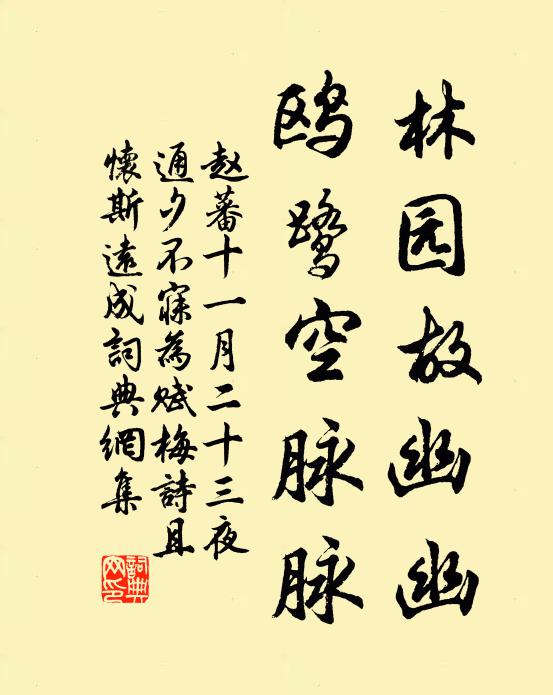 林园故幽幽
鸥鹭空脉脉
赵蕃十一月二十三夜
通夕不寐為赋梅詩且
懷斯遠成詞典網集
詞典
网印